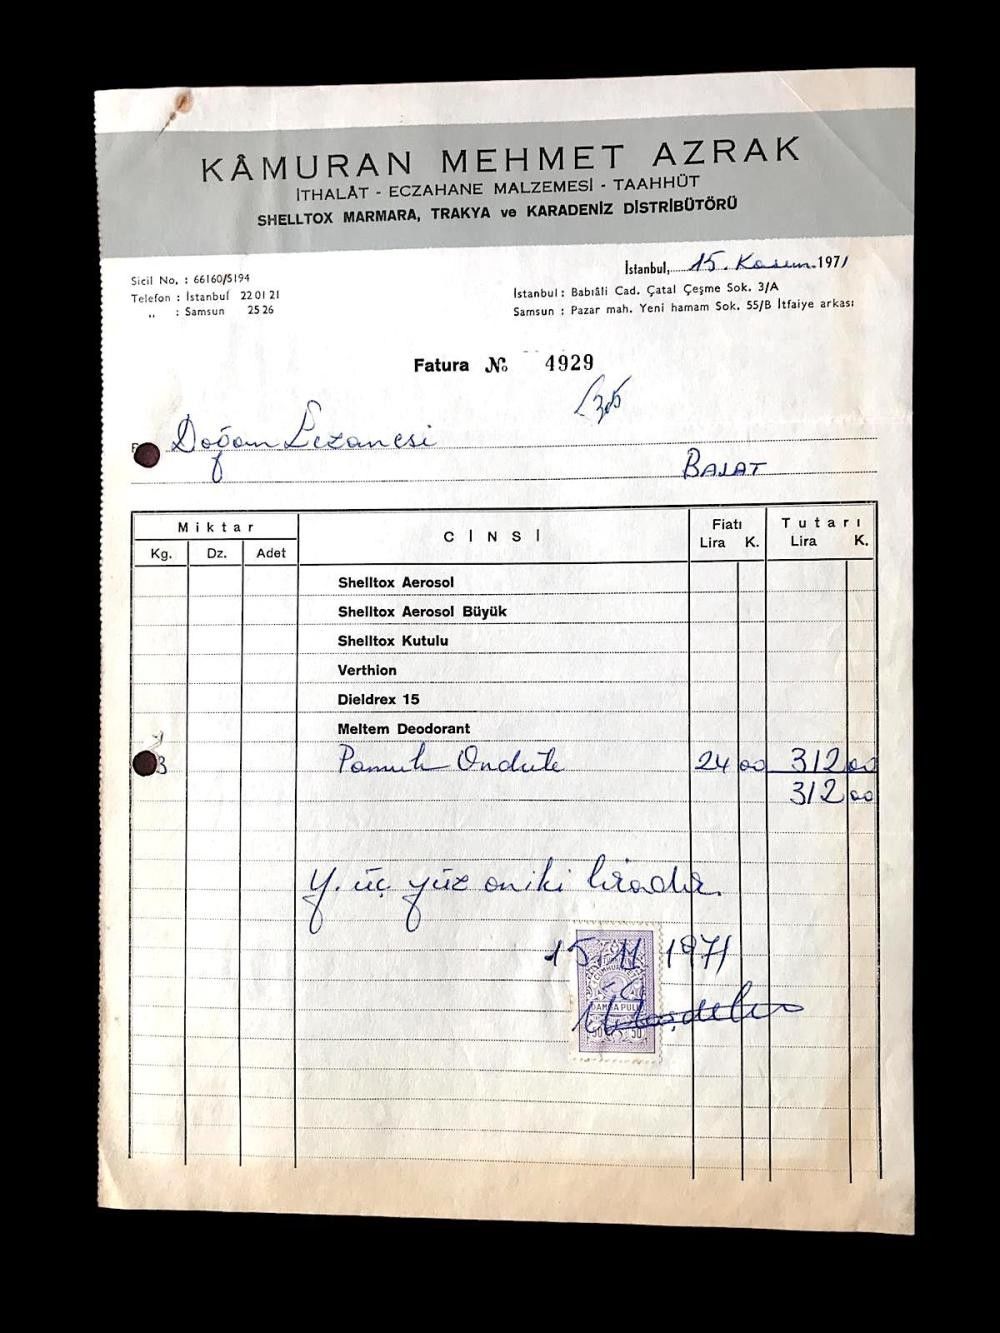 KÂMURAN MEHMET AZRAK
İTHALÂT - ECZAHANE MALZEMESİ - TAAHHÜT
SHELLTOX MARMARA, TRAKYA ve KARADENİZ DİSTRİBÜTÖRÜ
İstanbul, 15. Kasım 1971
Sicil No. : 66160/5194
Telefon : İstanbul 22 01 21
„ : Samsun 25 26
İstanbul : Babıâli Cad. Çatal Çeşme Sok. 3/A
Samsun : Pazar mah. Yeni hamam Sok. 55/B İtfaiye arkası
Fatura № 4929
Doğan Eczanesi
BALAT
Miktar CİNSİ Fiatı Tutarı
Kg. Dz. Adet Lira K. Lira K.
Shelltox Aerosol
Shelltox Aerosol Büyük
Shelltox Kutulu
Verthion
Dieldrex 15
Meltem Deodorant
3 Pamuk Ondüle 24 00 312 00
312 00
Y. üç yüz oniki liradır.
15 11 1971
DAMGA PULU
50 50